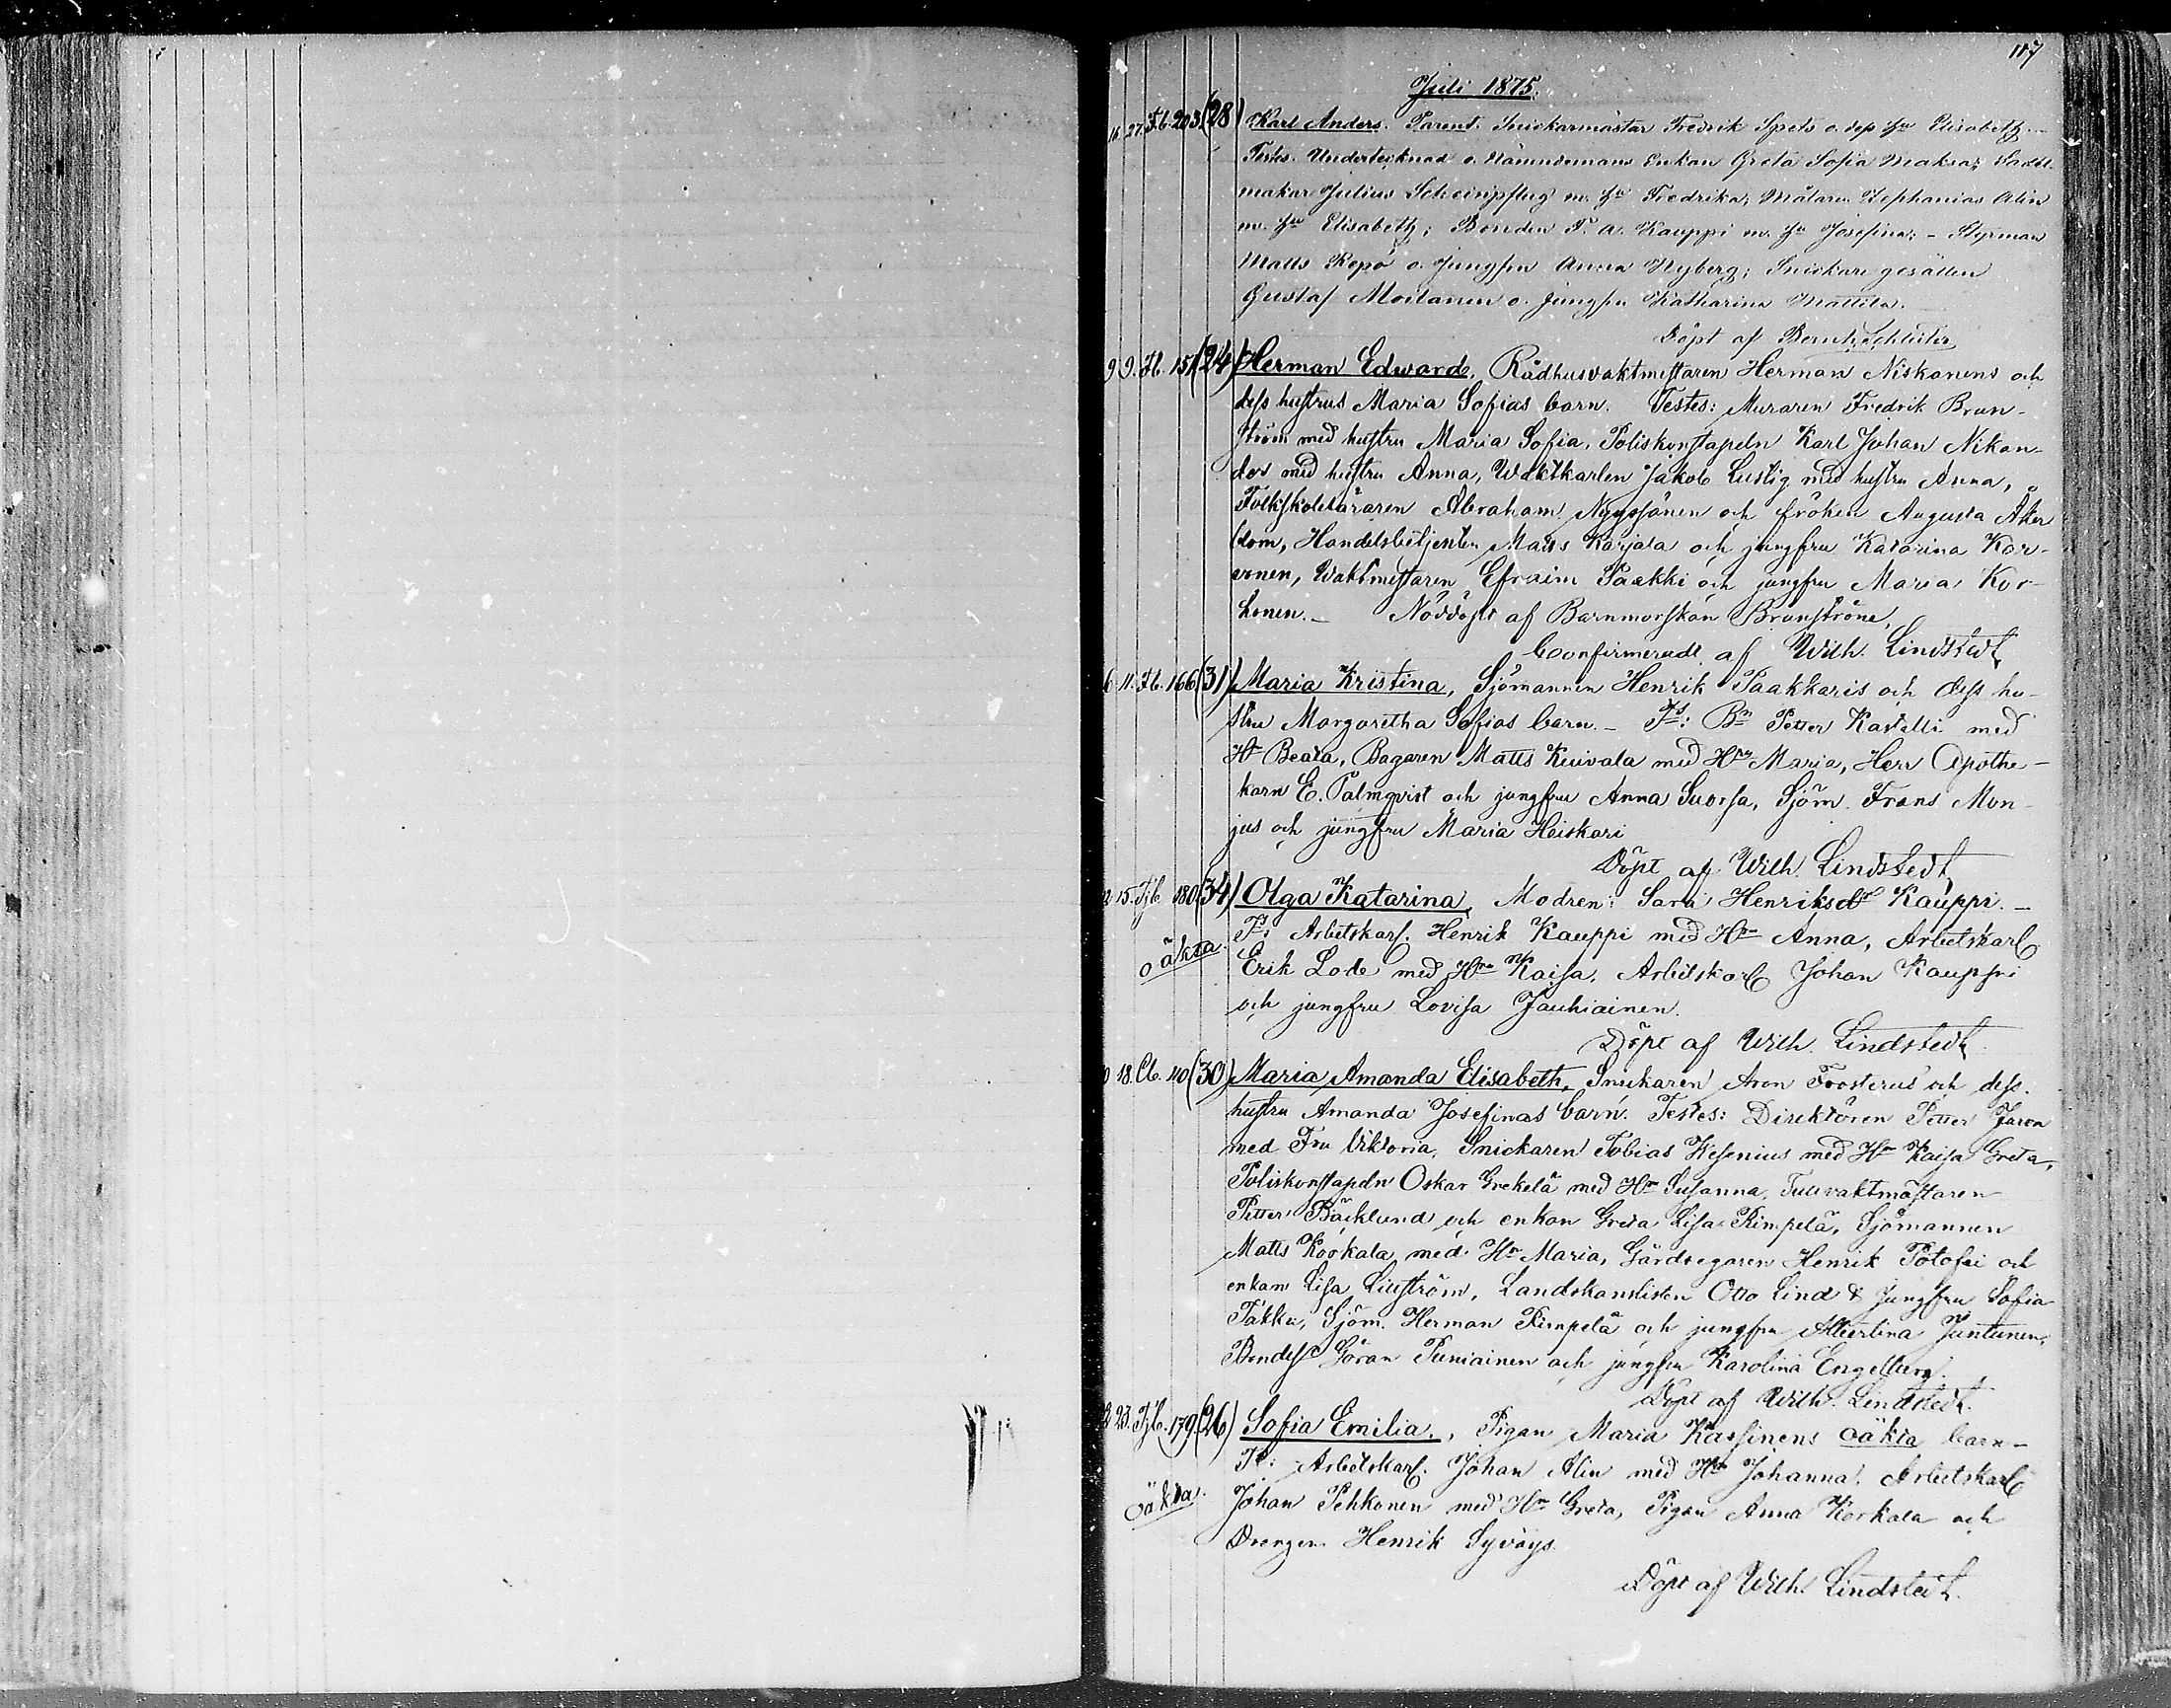 117
Juli 1875.
16. 27. Fb. 203 (28) Karl Anders. Parent. Snickarmästar Fredrik Spets o. dess hu Elisabeth.
Testes. Undertecknad o. Nämndemans Enkan Greta Sofia Maksa; Sadel-
makar Julius Scheinpflug m. hu Fredrika; Målaren Zephanias Alin
m. hu Elisabeth; Bonden F. A. Kauppi m. hu Josefina; - Styrman
Matts Repo o. Jungfru Anna Nyberg; Snickare gesällen
Gustaf Moilanen o. jungfru Katharina Mattila.
Döpt af Bernh. Schlüter
9 9. Fb. 151 (24) Herman Edward, Rådhusvaktmestaren Herman Niskanens och
dess hustrus Maria Sofias barn. Testes: Muraren Fredrik Brun-
ström med hustru Maria Sofia, Poliskonstapeln Karl Johan Nikan-
der med hustru Anna, Waktkarlen Jakob Lustig med hustru Anna,
Folkskoleläraren Abraham Nyyssönen och fröken Augusta Åker
blom, Handelsbetjenten Matts Karjala och jungfru Katarina Kar-
vonen, Waktmestaren Efraim Paakki och jungfru Maria Kor-
honen. _ Nöddöpt af Barnmorskan Brunström,
Confirmeradt af Wilh. Lindstedt
6 11. Fb. 166 (31) Maria Kristina, Sjömannen Henrik Paakkaris och dess hu-
stru Margaretha Sofias barn. _ Ts: Bn Petter Kastelli med
Hu Beata, Bagaren Matts Kuivala med Hru Maria, Herr Apothe-
karn E. Palmqvist och jungfru Anna Suorsa, Sjöm. Frans Mon-
jus och jungfru Maria Heiskari
Döpt af Wilh. Lindstedt
2 15. Tjb. 180 (34) Olga Katarina, Modren: Sara Henriksdr Kauppi. _
oäkta. Ts: Arbetskarl. Henrik Kauppi med Hru Anna, Arbetskarl
Erik Lode med Hru Kaisa, Arbetskarl Johan Kauppi
och jungfru Lovisa Jauhiainen.
Döpt af Wilh. Lindstedt
0 18. Cb. 110 (30) Maria Amanda Elisabeth, Snickaren Aron Frosterus och dess.
hustru Amanda Josefinas barn. Testes: Direktören Petter
med Fru Viktoria, Snickaren Tobias Hesenius med Hru Kaisa Greta,
Poliskonstapeln Oskar Grekelä med Hru Susanna, Tullvaktmästaren
Petter Bäcklund och enkan Greta Lisa Rimpelä, Sjömannen
Matts Korkala, med Hru Maria, Gårdsegaren Henrik och
enkan Lisa Liliström, Landskanslisten Otto Lind & jungfru Sofia
Takku, Sjöm. Herman Rimpelä och jungfru Albertina Juntunen,
Göran Puniainen och jungfru Karolina Engelberg.
Döpt af Wilh. Lindstedt.
2 23. Tjb. 179 (26) Sofia Emilia., Pigan Maria Kassinens oäkta barn _
oäkta. Ts: Arbetskarl. Johan Alin med Hru Johanna. Arbetskarl
Johan Pehkonen med Hru Greta, Pigan Anna Korkala och
Drengen Henrik Syväys.
Döpt af Wilh. Lindstedt.